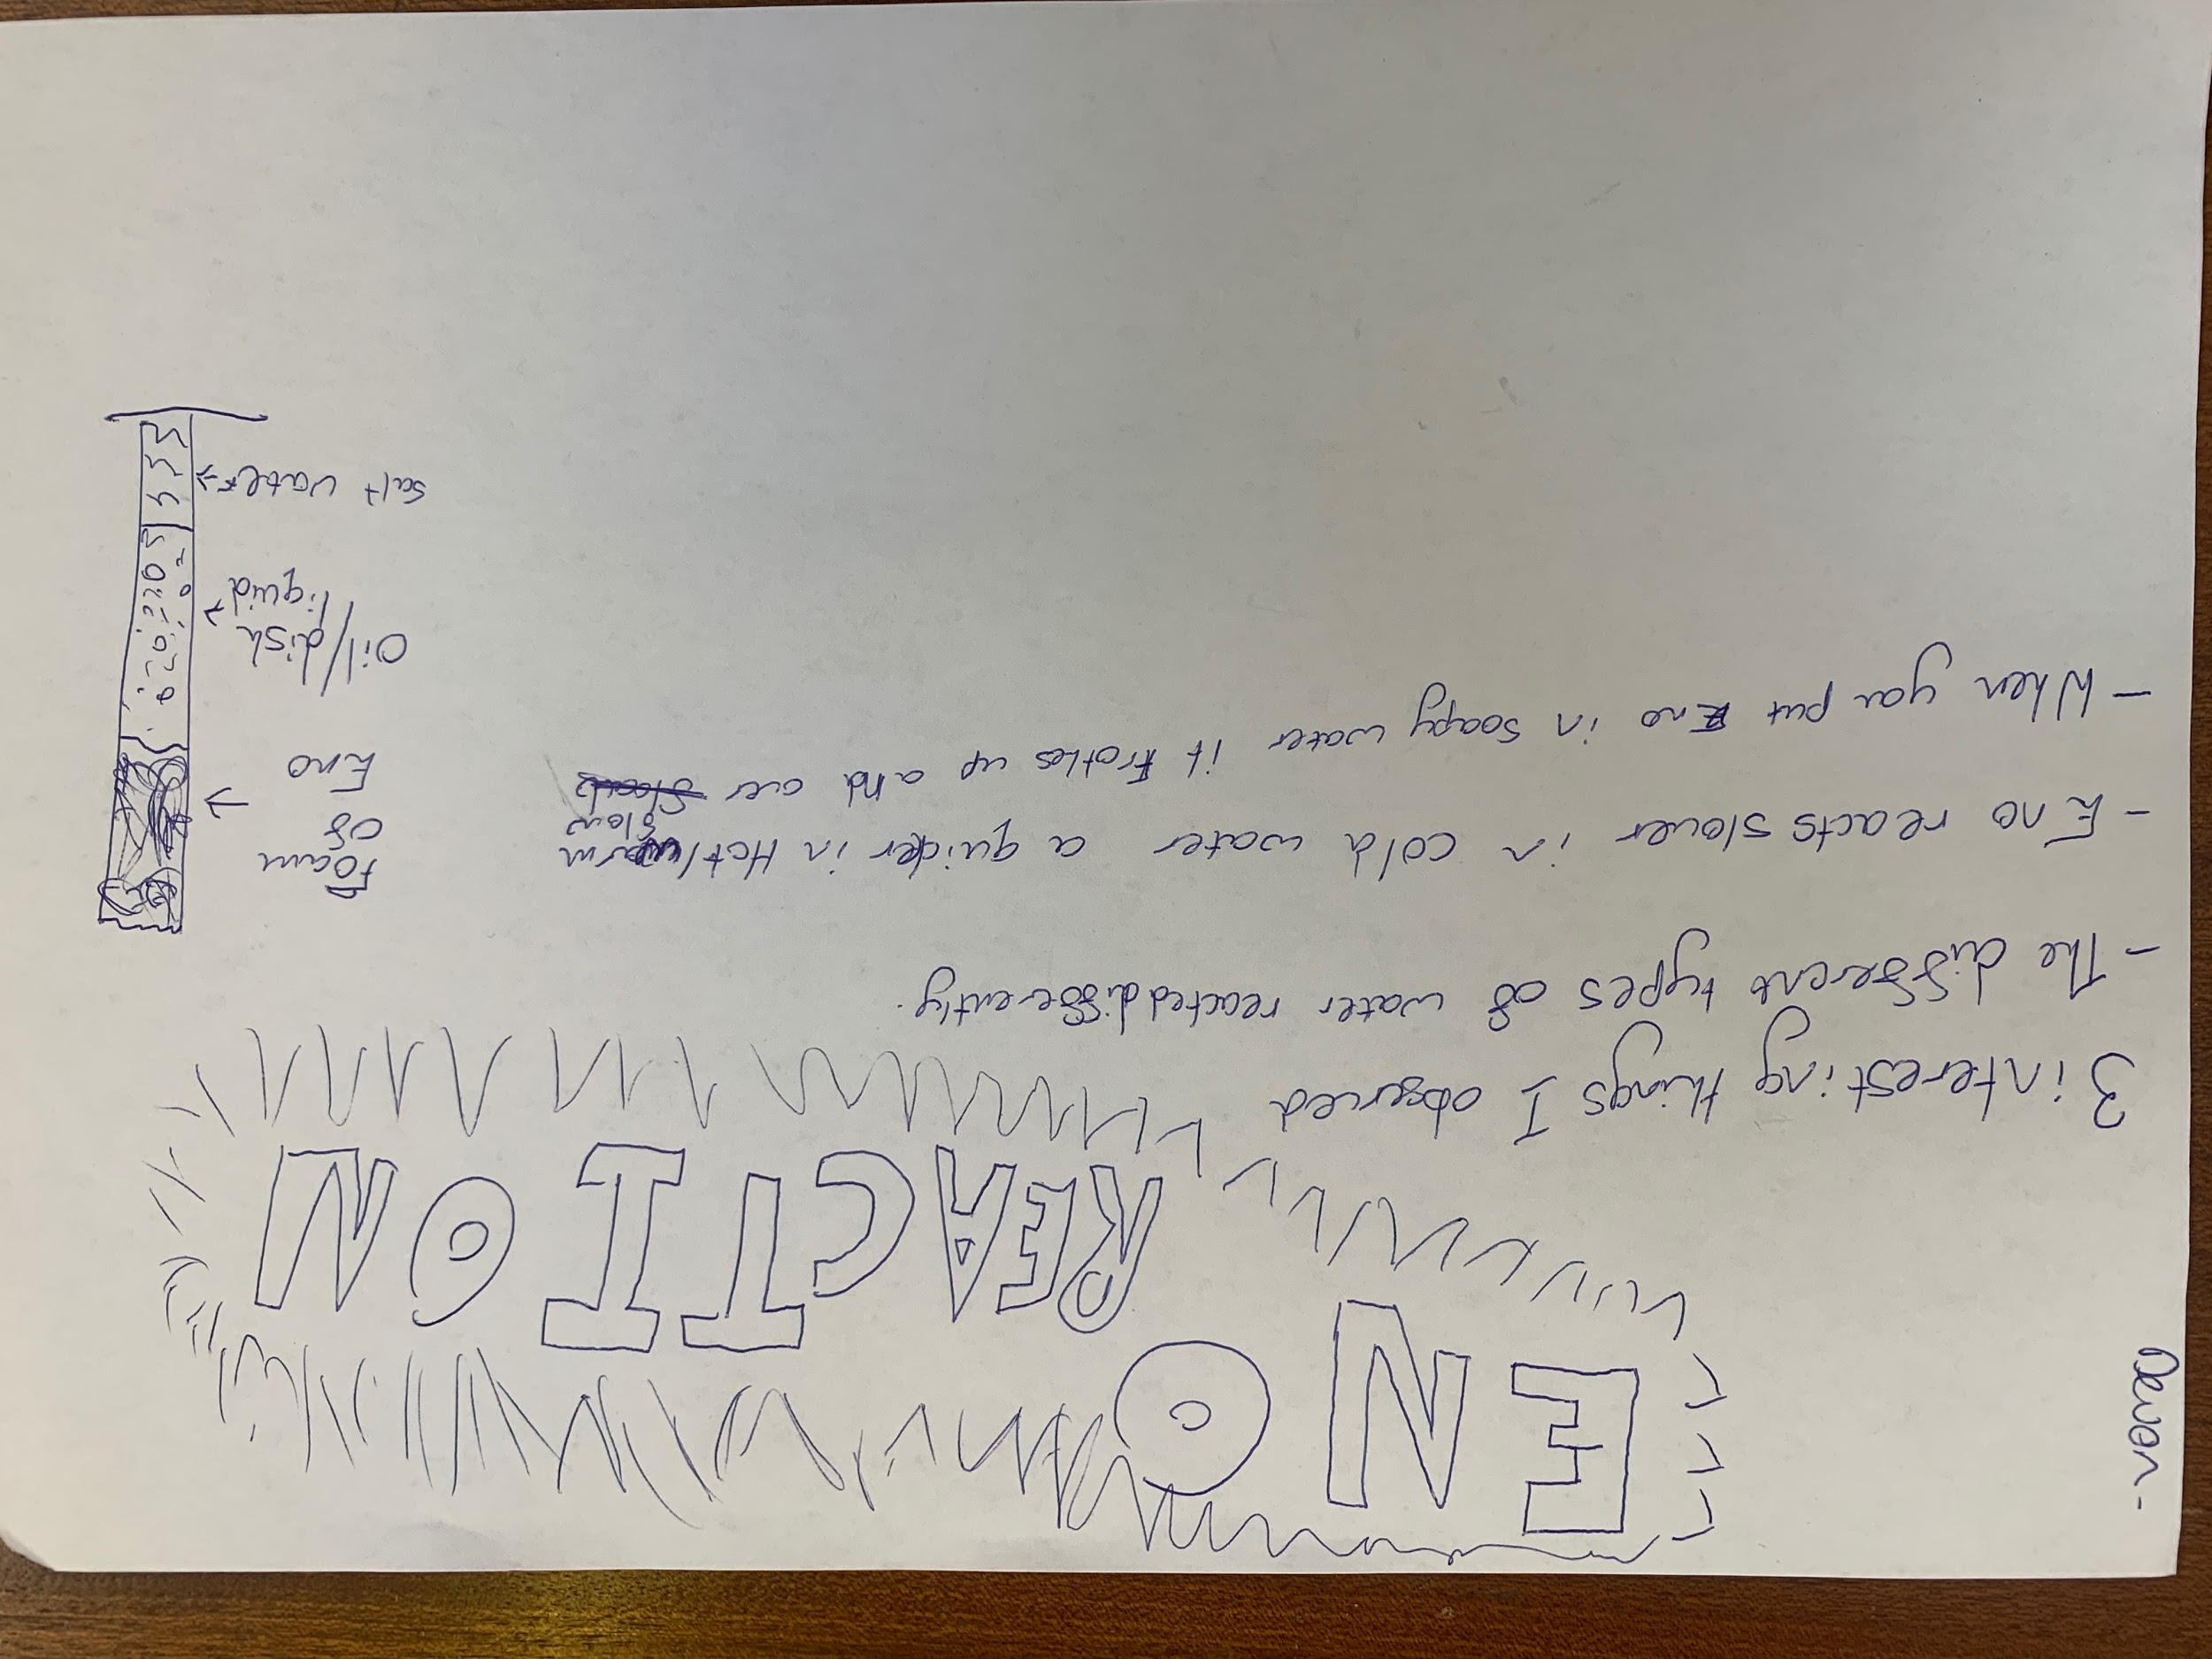 Devon-
ENO
REACTION
3 interesting things I observed
- The different types of water reacted differently.
- Eno reacts slower in cold water a quicker in Hot/warm
- When you put Eno in soapy water it Frothes up and over
flow
Foam
of
Eno
Oil/dish
liquid
Salt water